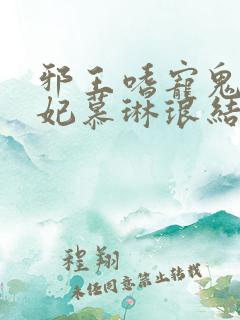 邪王嗜寵鬼
妃慕琳琅結
程翔
未任同意禁止转载